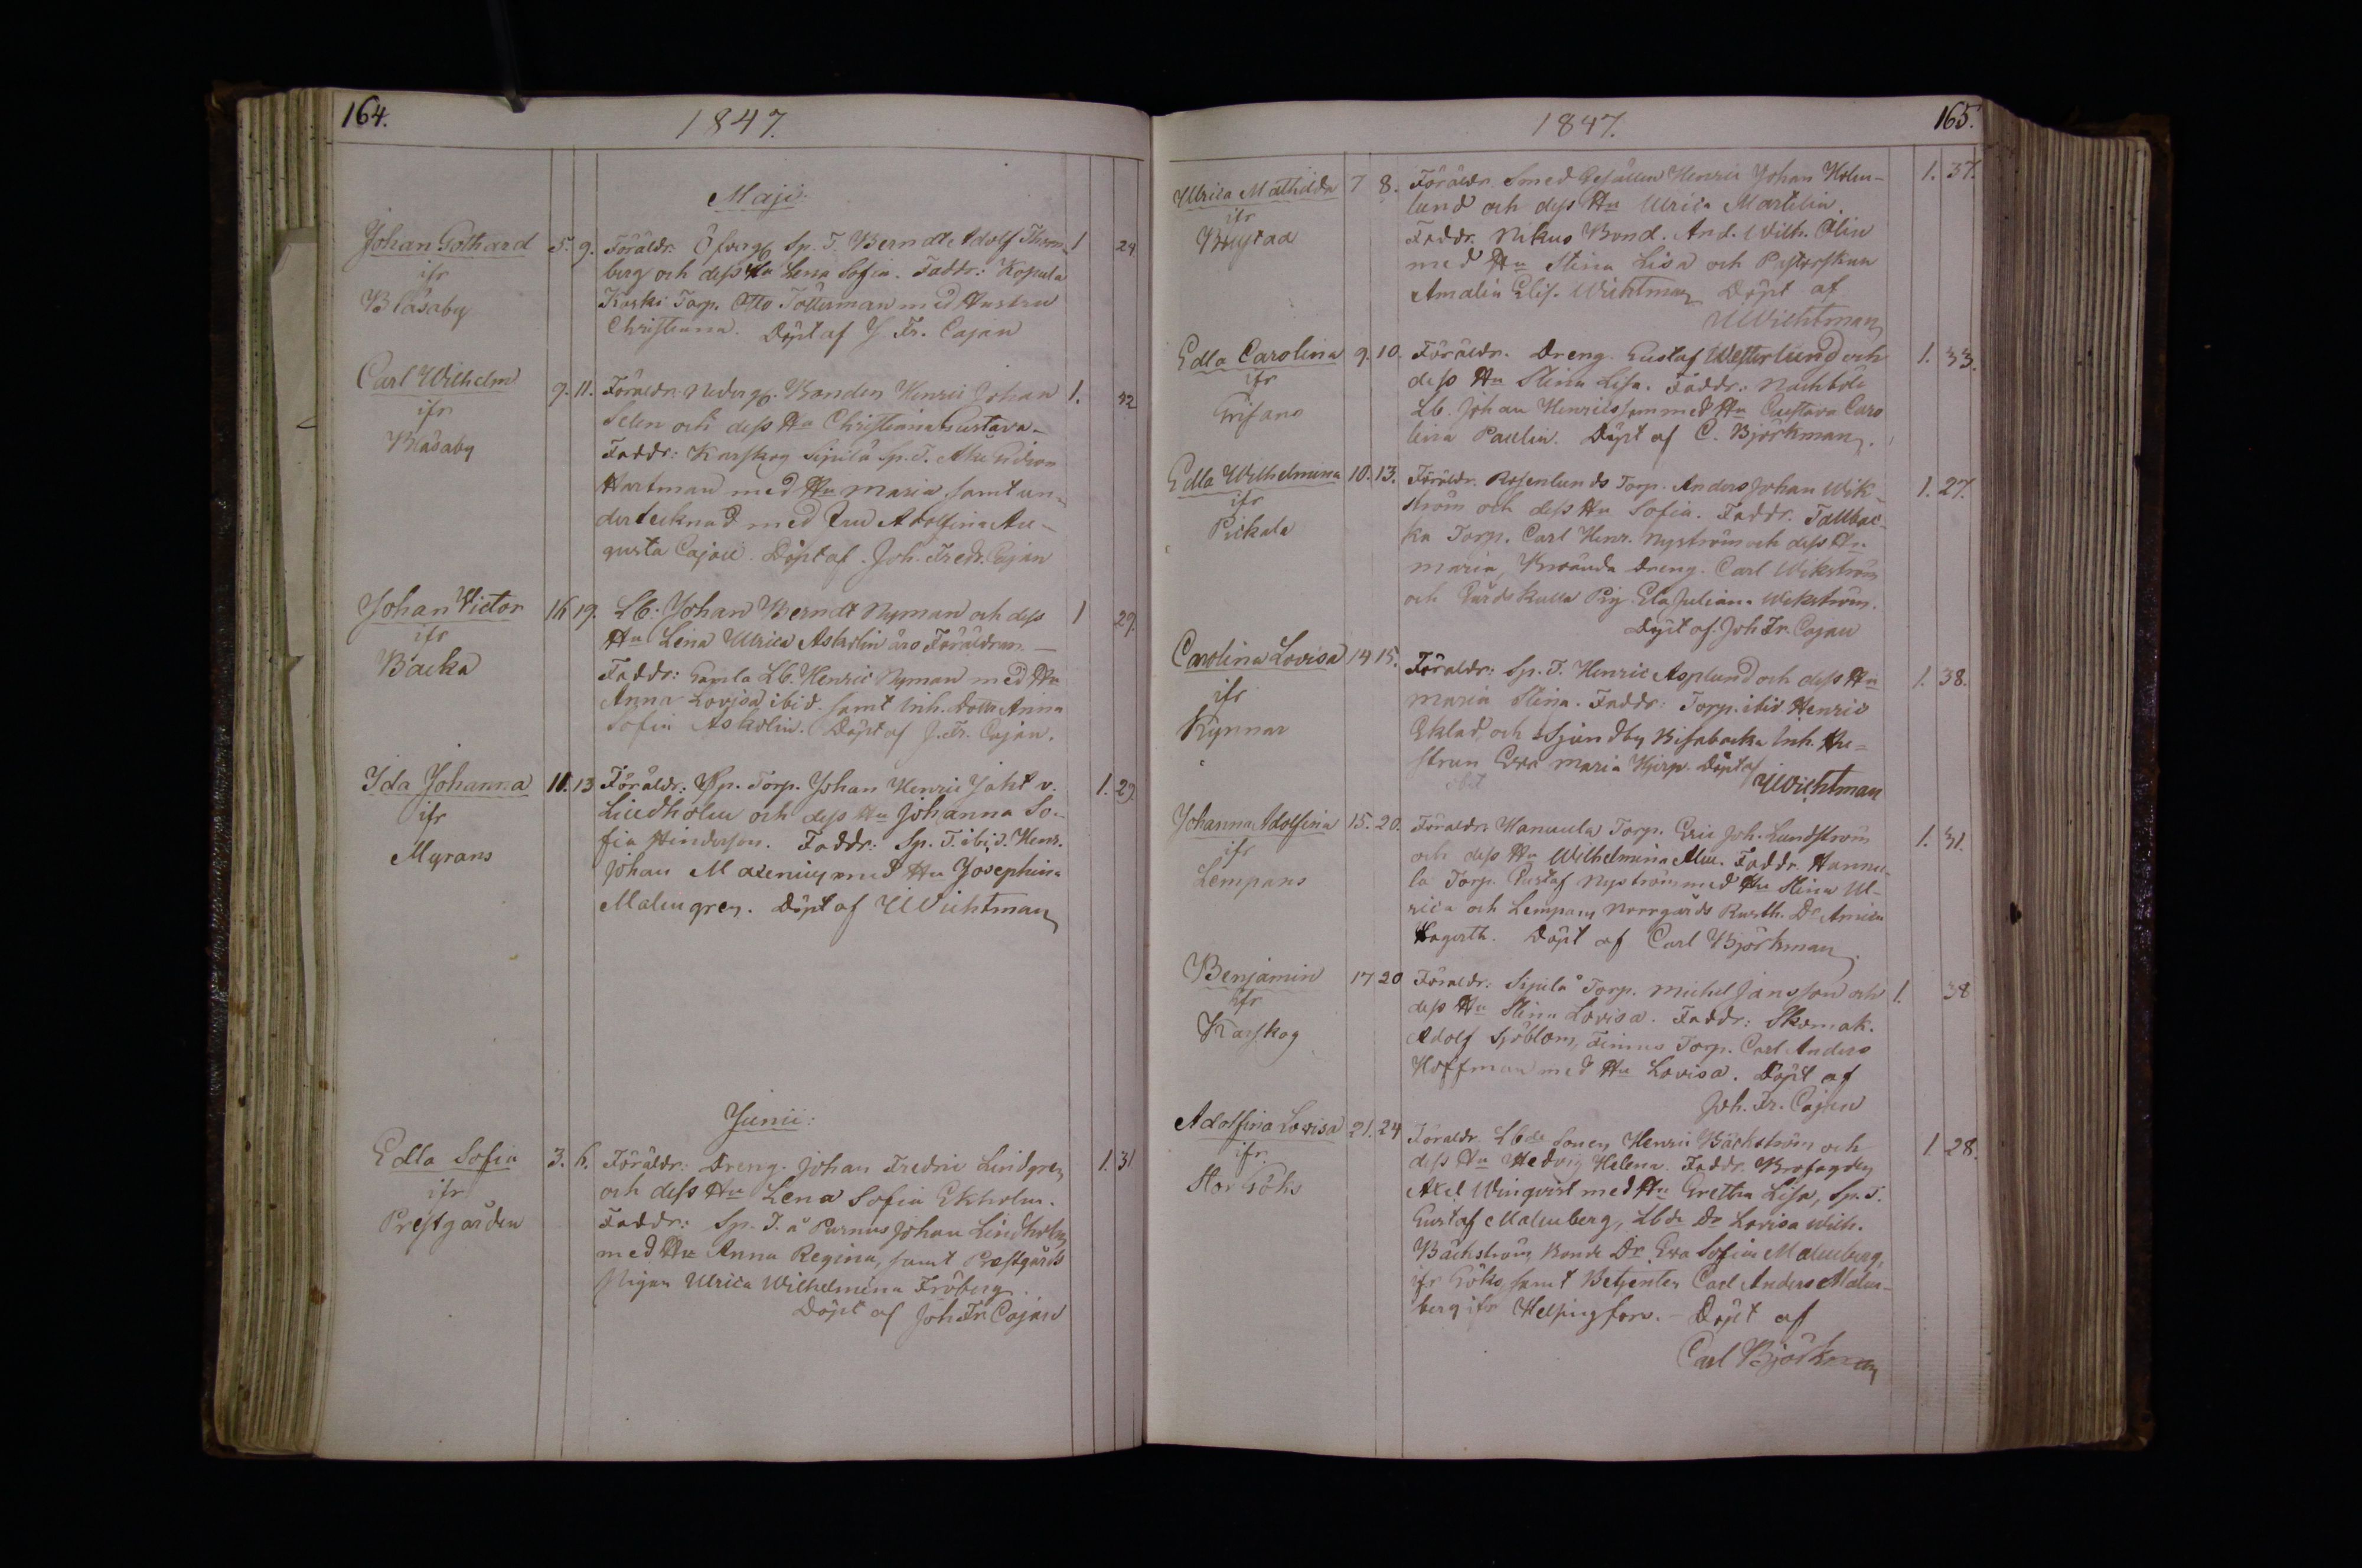 164.
1847.
Maji.
Johan Gothard 5. 9. Föräldr. Öfverg. Sp. T. Berndt Adolf Thern- 1 24
ifr
berg och dess Hu Lena Sofia. Faddr.: Kopula
Blåsaby
Kaski Torp. Otto Tötterman med Hustru
Christiana. Döpt af J Fr. Cajan
Carl Wilhelm 9. 11. Föräldr. Nederg. Bonden Henric Johan 1. 32
ifr
Selen och dess Hu Christiana Gustava-
Blåsaby
Faddr: Karskog Sipilä Sp. T.
Hartman med Hu Maria samt un-
dertecknad med Fru Adolfina Au-
gusta Cajan. Döpt af Joh. Fredr. Cajan
Johan Victor 16 19. Lb. Johan Berndt Nyman och dess 1 29.
ifr
Hu Lena Ulrica Askolin äro Föräldrar. —
Backa
Faddr: Gamla Lb. Henric Nyman med Hu
Anna Lovisa ibid. samt Inh. Dottr Anna
Sofia Askolin. Döpt af J. Fr. Cajan.
Ida Johanna 11. 13 Föräldr: Sp. Torp. Johan Henric Jakt v. 1. 29.
ifr
Lindholm och dess Hu Johanna So-
Myrans
fia Hinderson. Faddr: Sp. T. ibid. Henr.
Johan Maxenius med Hu Josephina
Malmgren. Döpt af UWichtman
Junii:
Edla Sofia 3. 6. Föräldr: Dreng. Johan Fredric Lindgren 1. 31
ifr
och dess Hu Lena Sofia Ekholm.
Prestgården
Faddr: Sp. T. å Purnus Johan Lindholm
med Hu Anna Regina, samt Prestgårds
Pigan Ulrica Wilhelmina Fröberg.
Döpt af Joh Fr. Cajan
1847.
165.
Ulrica Mathilda 7 8. Föräldr. Smed Gesällen Henric Johan Holm- 1. 37.
ifr
lund och dess Hu Ulrica Martelin.
Bygstad
Faddr. Nikus Bond. And. Wilh. Alin
med Hu Stina Lisa och Pastorskan
Amalia Elis. Wichtman Döpt af
UWichtman
Edla Carolina 9. 10. Föräldr. Dreng. Gustaf Westerlund och 1. 33.
ifr
dess Hu Stina Lisa. Faddr.: Nackböle
Grisans
Lb. Johan Henricsson med Hu Gustava Caro
lina Paulin. Döpt af C. Björkman.
Edla Wilhelmina 10. 13. Föräldr. Rosenlunds Torp. Anders Johan Wik- 1. 27.
ifr
ström och dess Hu Sofia. Faddr. Tallbac-
Pickala
ka Torp. Carl Henr. Nyström och dess Hu
Maria, Brounda Dreng. Carl Wikström
och Gårdskulla Pig. Ela Juliana Wikström.
Döpt af. Joh Fr. Cajan
Carolina Lovisa 14 15. Föräldr: Sp. T. Henric Asplund och dess Hu 1. 38.
ifr
Maria Stina. Faddr: Torp. ibid Henric
Kynnar
Eklad och Sjundby Bisabacka Inh. Hu-
strun Eva Maria Hjerp. Döpt af
UWichtman
Johanna Adolfina 15. 20. Föräldr. Hannula Torp. Eric Joh. Lundström 1. 31.
ifr
och dess Hu Wilhelmina Alm. Faddr. Hannu-
Lempans
la Torp. Gustaf Nyström med Hu Stina Ul-
rica och Lempans Norrgårds Rusth. Dr Amica
Hagerth. Döpt af Carl Björkman
Benjamin 17 20 Föräldr: Sipilä Torp. Michel Jansson och 1. 38
ifr
dess Hu Stina Lovisa. Faddr: Skomak.
Karskog
Adolf Sjöblom, Finnus Torp. Carl Anders
Hoffman med Hu Lovisa. Döpt af
Joh. Fr. Cajan
Adolfina Lovisa 21. 24 Föräldr. Lbde Sonen Henric Bäckström och 1 28.
ifr
dess Hu Hedvig Helena. Faddr. Brofogden
Stor Göks
Axel Winqvist med Hu Gretha Lisa, Sp. T.
Gustaf Malmberg, Lbde Dr Lovisa Wilh.
Bäckström, Bonde Dr. Eva Sofia Malmberg,
ifr Göks, samt Betjenten Carl Anders Malm-
berg ifr Helsingfors. - Döpt af
Carl Björkman